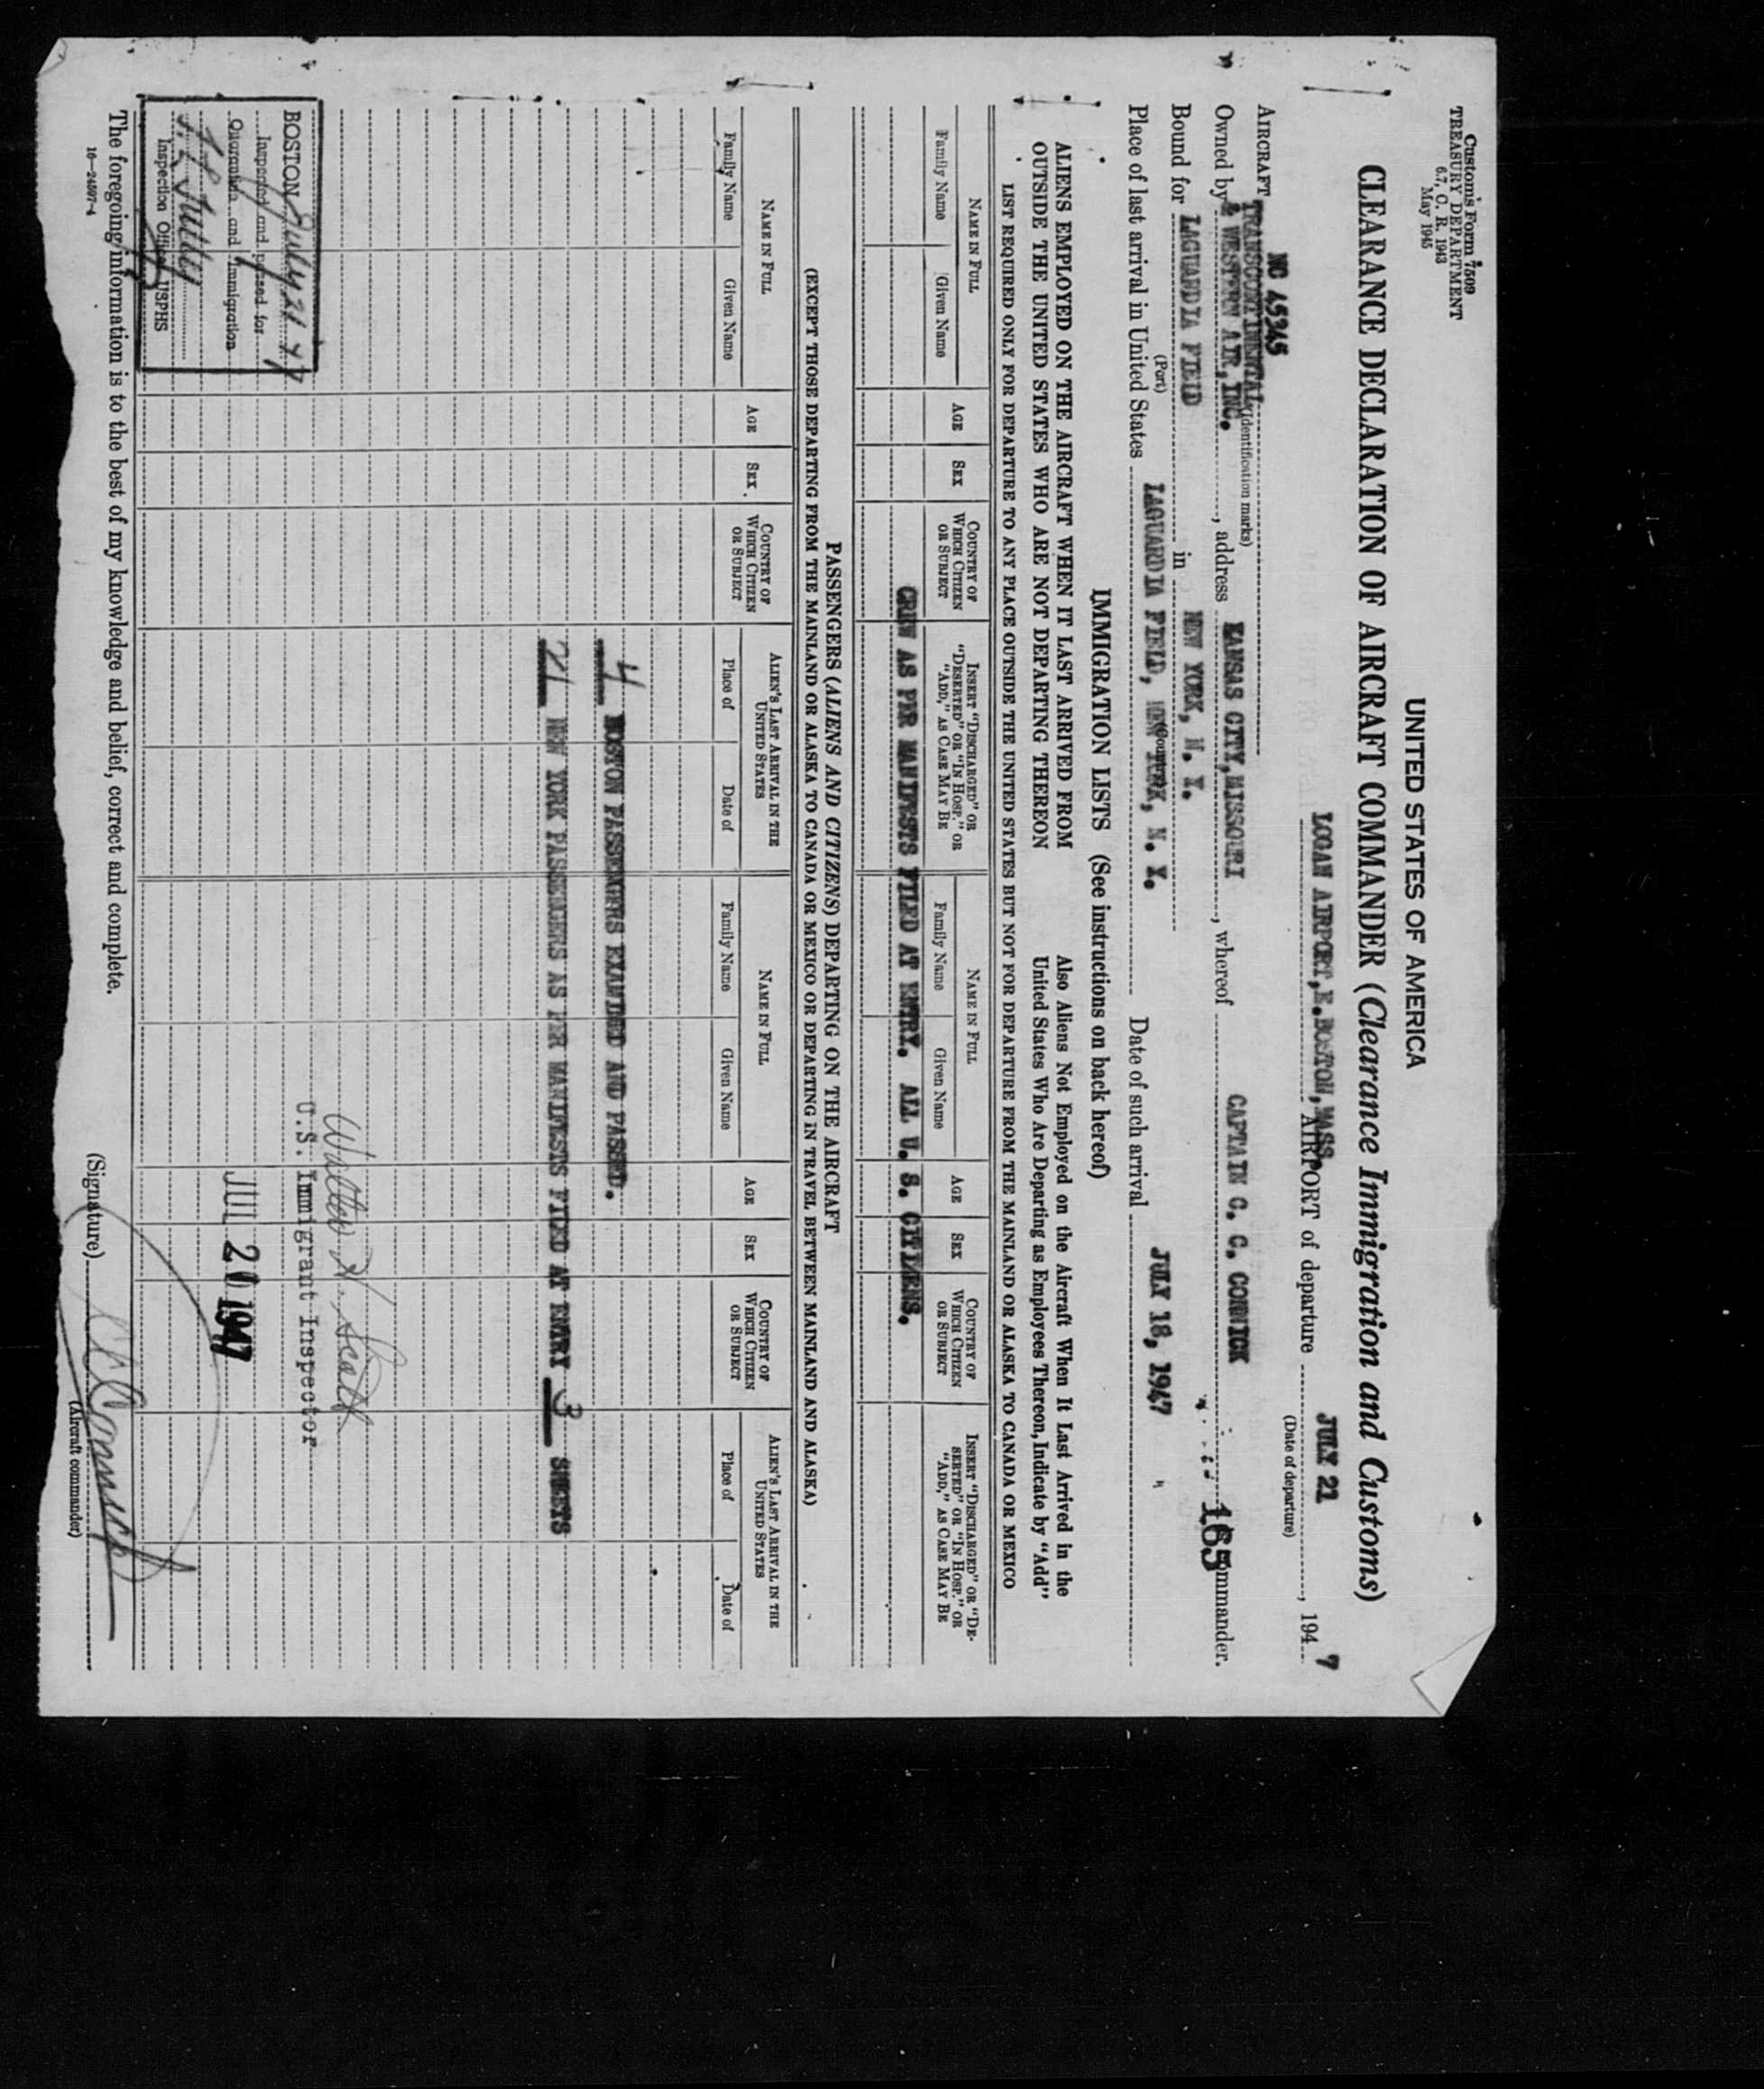 Customs Form 7509
TREASURY DEPARTMENT
6.7, C. R. 1943
May 1945
UNITED STATES OF AMERICA
CLEARANCE DECLARATION OF AIRCRAFT COMMANDER (Clearance Immigration and Customs)
LOGAN AIRPORT, E. BOSTON, MASS. AIRPORT of departure JULY 21, 194 7
(Date of departure)
NC 45345
AIRCRAFT
(Identification marks)
TRANSCONTINENTAL
Owned by & WESTERN AIR, INC., address KANSAS CITY, MISSOURI, whereof CAPTAIN C. C. CORNICK Commander.
165
Bound for LAGUARDIA FIELD in NEW YORK, N. Y.
(Port) (Country)
Place of last arrival in United States LAGUARDIA FIELD, NEW YORK, N. Y. Date of such arrival JULY 18, 1947
IMMIGRATION LISTS (See instructions on back hereof)
ALIENS EMPLOYED ON THE AIRCRAFT WHEN IT LAST ARRIVED FROM OUTSIDE THE UNITED STATES WHO ARE NOT DEPARTING THEREON
Also Aliens Not Employed on the Aircraft When It Last Arrived in the United States Who Are Departing as Employees Thereon, Indicate by "Add"
LIST REQUIRED ONLY FOR DEPARTURE TO ANY PLACE OUTSIDE THE UNITED STATES BUT NOT FOR DEPARTURE FROM THE MAINLAND OR ALASKA TO CANADA OR MEXICO
NAME IN FULL
Family Name Given Name
AGE
SEX
COUNTRY OF WHICH CITIZEN OR SUBJECT
INSERT "DISCHARGED" OR "DESERTED" OR "IN HOSP." OR "ADD," AS CASE MAY BE
NAME IN FULL
Family Name Given Name
AGE
SEX
COUNTRY OF WHICH CITIZEN OR SUBJECT
INSERT "DISCHARGED" OR "DESERTED" OR "IN HOSP." OR "ADD," AS CASE MAY BE
CREW AS PER MANIFESTS FILED AT ENTRY. ALL U. S. CITIZENS.
PASSENGERS (ALIENS AND CITIZENS) DEPARTING ON THE AIRCRAFT
(EXCEPT THOSE DEPARTING FROM THE MAINLAND OR ALASKA TO CANADA OR MEXICO OR DEPARTING IN TRAVEL BETWEEN MAINLAND AND ALASKA)
NAME IN FULL
Family Name Given Name
AGE
SEX
COUNTRY OF WHICH CITIZEN OR SUBJECT
ALIEN'S LAST ARRIVAL IN THE UNITED STATES
Place of Date of
NAME IN FULL
Family Name Given Name
AGE
SEX
COUNTRY OF WHICH CITIZEN OR SUBJECT
ALIEN'S LAST ARRIVAL IN THE UNITED STATES
Place of Date of
4 BOSTON PASSENGERS EXAMINED AND PASSED.
21 NEW YORK PASSENGERS AS PER MANIFESTS FILED AT ENTRY 3 SHEETS
Walter N. Scott
U.S. Immigrant Inspector
JUL 20 1947
BOSTON July 21 47
Inspected and passed for
Quarantine and Immigration
Inspection Officer, USPHS
The foregoing information is to the best of my knowledge and belief, correct and complete.
(Signature) CCCornick
(Aircraft commander)
16—24597-4